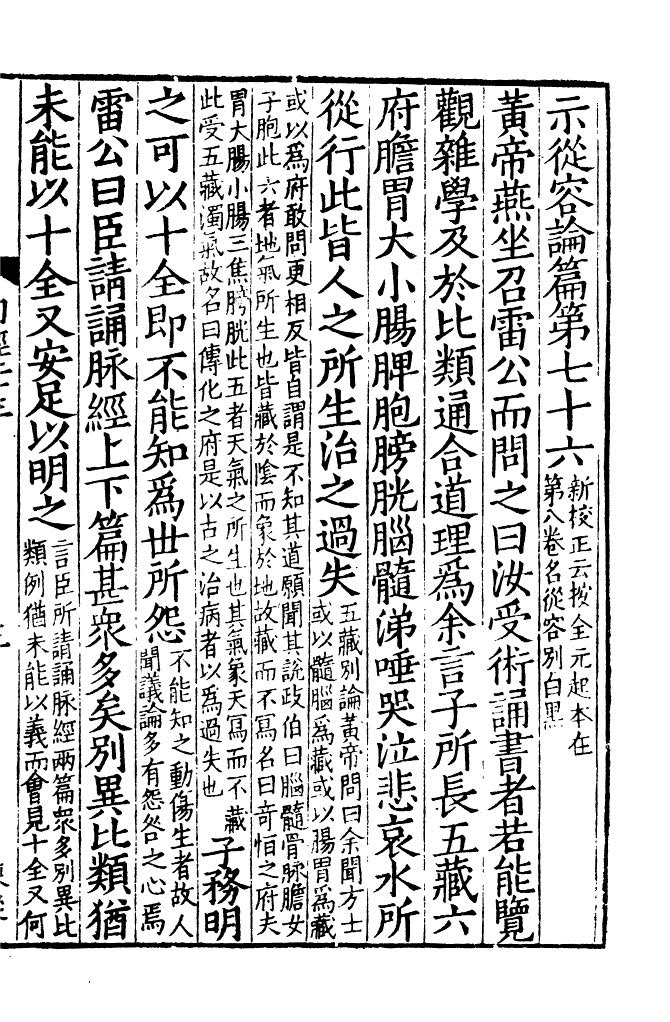 示從容論篇第七十六新校正云按全元起本在
第八卷名從容别白黑
黃帝燕坐召雷公而問之曰汝受術誦書者若能覽
觀雜學及於比類通合道理爲余言子所長五藏六
府膽胃大小腸脾胞膀胱腦髓涕唾哭泣悲哀水所
從行此皆人之所生治之過失五藏别論黃帝問曰余聞方士
或以髓腦爲藏或以腸胃爲藏
或以爲府敢問更相反皆自謂是不知其道願聞其說歧伯曰腦髓骨脉膽女
子胞此六者地氣所生也皆藏於陰而象於地故藏而不寫名曰奇恒之府夫
胃大腸小腸三焦膀胱此五者天氣之所生也其氣象天寫而不藏
此受五藏濁氣故名曰傳化之府是以古之治病者以爲過失也
子務明
之可以十全即不能知爲世所怨不能知之動傷生者故人
聞議論多有怨咎之心焉
雷公曰臣請誦脉經上下篇甚衆多矣别異比類猶
未能以十全又安足以明之言臣所請誦脉經兩篇衆多别異比
類例猶未能以義而會見十全又何